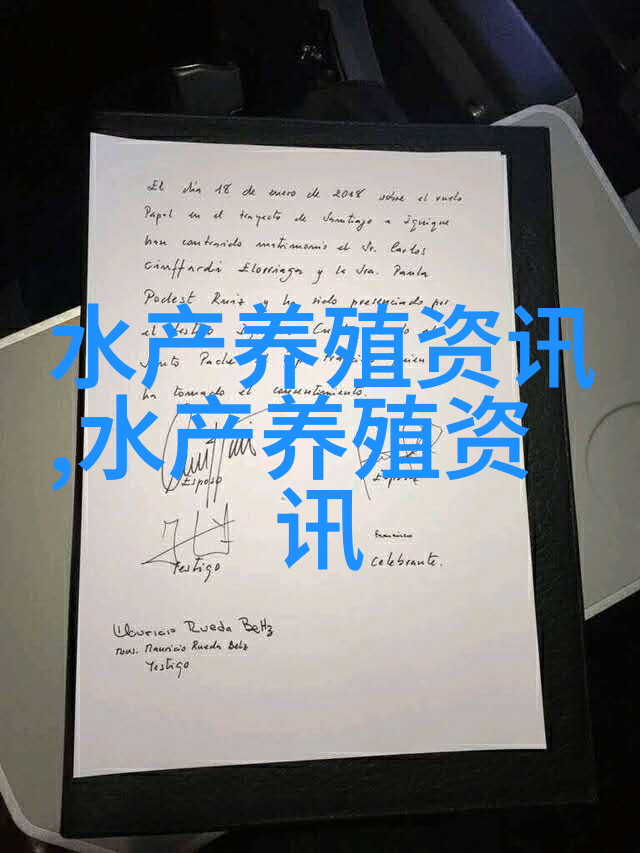 El día 18 de enero de 2018 sobre el vuelo
Papal en el trayecto de Santiago a Iquique
han contraido matrimonio el Sr. Carlos
Ciuffardi Elorriaga y la Sra. Paula
Podest Ruiz y ha sido presenciado por
el testigo
水产养殖资讯
Santo Padre
ha tomado el consentimiento.
,水产养殖资
讯
Esposo
Esposa
Testigo
Franciscus
Celebrante.
Mauricio Rueda Beltz
Mons. Mauricio Rueda Beltz
Testigo